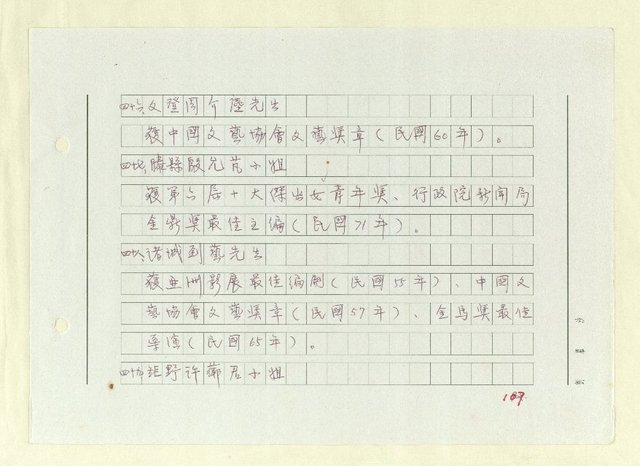 四十六、文登周介塵先生
獲中國文藝協會文藝獎章(民國60年)。
四十七、滕縣殷允芃小姐
獲第六屆十大傑出女青年獎、行政院新聞局
金鼎獎最佳主編(民國71年)。
四十八、諸城劉藝先生
獲亞洲影展最佳編劇(民國55年)、中國文
藝協會文藝獎章(民國57年)、金馬獎最佳
導演(民國65年)。
四十九、鉅野許鄰君小姐
167